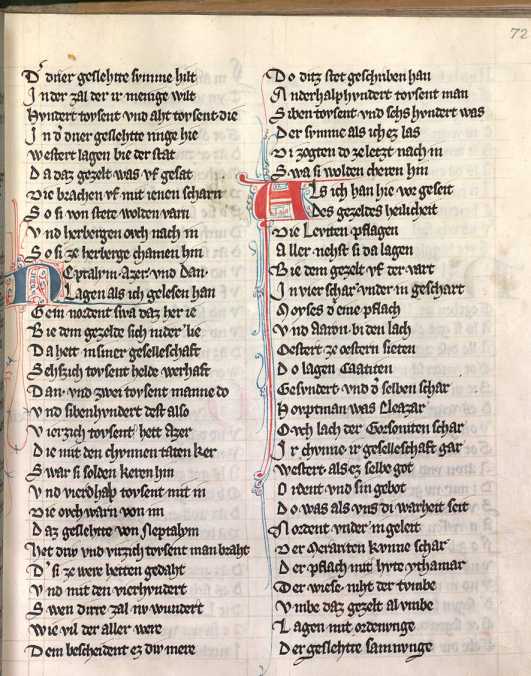 72
D͛ drier geslehtte symme hilt
In der zal der ir menige wilt
Hvndert tovsent vnd aht tovsent die
In d͛ drier geslehtte ninge hie
Westert lagen bie der stat
Da daz gezelt was vf gesat
Die brachen vf mit ienen scharn
So si von stete wolden varn
Vnd herbergen ovch nach in
So si ze herberge chamen hin
Neptalym Azer vnd Dan
Lagen als ich gelesen han
Gein nordent siva daz her ie
Bie dem gezelde sich nider lie
Da hett in siner geselleschaft
Sehszich tovsent helde werhaft
Dan vnd zwei tovsent manne do
Vnd sibenhvndert dest also
Vierzich tovsent hett Azer
Die mit den chvnnen taten ker
Swar si solden keren hin
Vnd vierdhalp tovsent mit in
Die ovch warn von im
Daz geslehtte von Neptalym
Het driv vnd virzich tovsent man braht
D͛ si ze were hetten gedaht
Vnd mit den vierhvndert
Swen dirre zal nv wundert
Wie vil der aller were
Dem bescheident ez div mere
Do ditz stet geschriben han
Anderhalphvndert tovsent man
Siben tovsent vnd sehs hvndert was
Der symme als ich ez las
Di zogten do ze letzt nach in
Swa si wolden cheren hin
Als ich han hie vor geseit
Des gezeldes heilicheit
Die Leviten pflagen
Aller nehst si da lagen
Bie dem gezelt vf der vart
In vier schar vnder in geschart
Moyses d͛ eine pflach
Vnd Aaron bi den lach
Oestert ze oestern sieten
Do lagen Caatiten
Gesvndert vnd d͛ selben schar
Hovptman was Eleazar
Ovch lach der Gersoniten schar
Ir chvnne ir geselleschaft gar
Westert als ez selbe got
Ordent vnd sin gebot
Do was als vns di warheit seit
Nordent vnder in geleit
Der Merariten kvnne schar
Der pflach mit hvte ythamar
Der wise niht der tvmbe
Vmbe daz gezelt al vmbe
Lagen mit ordenvnge
Der geslehtte samnvnge